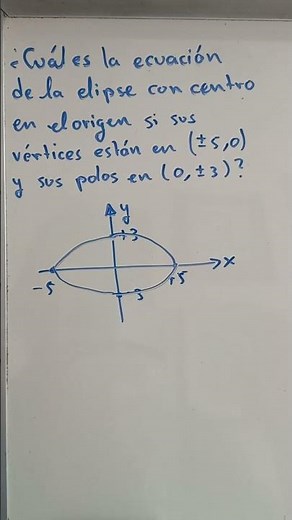 ¿Cuál es la ecuación
de la elipse con centro
en el origen si sus
vértices están en (±5,0)
y sus polos en (0,±3)?
y
+3
x
-5
+5
-3